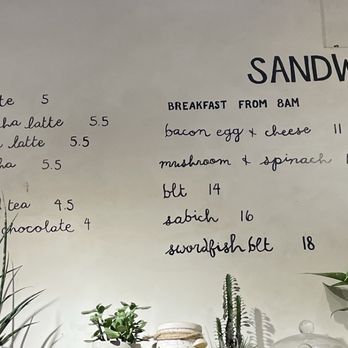 te 5
ha latte 5.5
latte 5.5
ha 5.5
tea 4.5
chocolate 4
SANDW
BREAKFAST FROM 8AM
bacon egg + cheese 11
mushroom + spinach
blt 14
sabich 16
swordfish blt 18